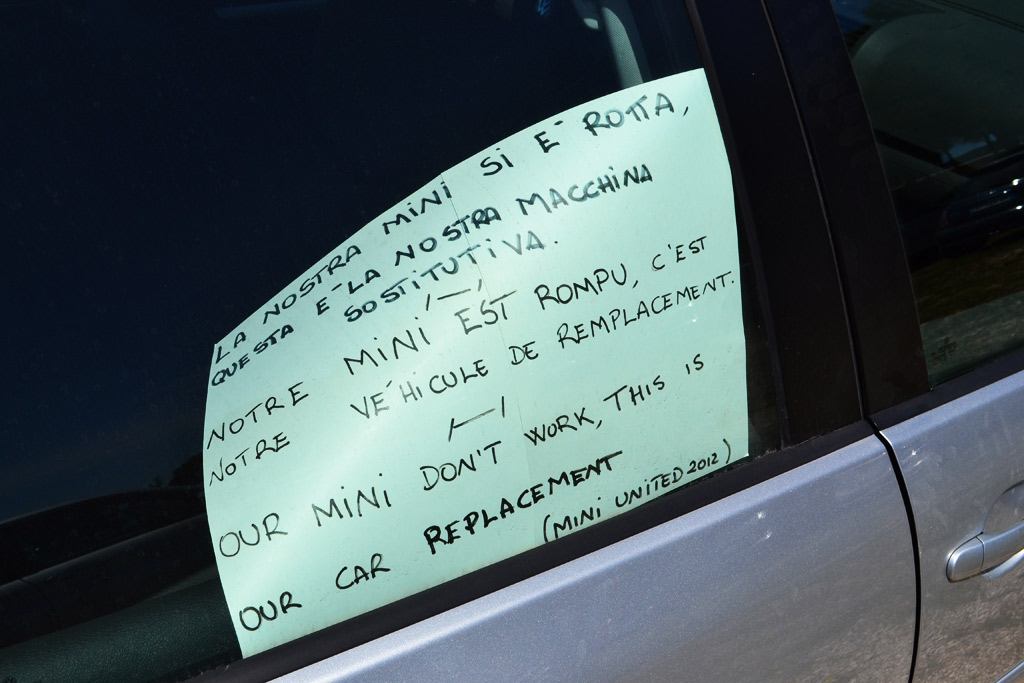 LA NOSTRA MINI SI E' ROTTA,
QUESTA E' LA NOSTRA MACCHINA
SOSTITUTIVA.
NOTRE MINI EST ROMPU, C'EST
NOTRE VÉHICULE DE REMPLACEMENT.
OUR MINI DON'T WORK, THIS IS
OUR CAR REPLACEMENT
(MINI UNITED 2012)